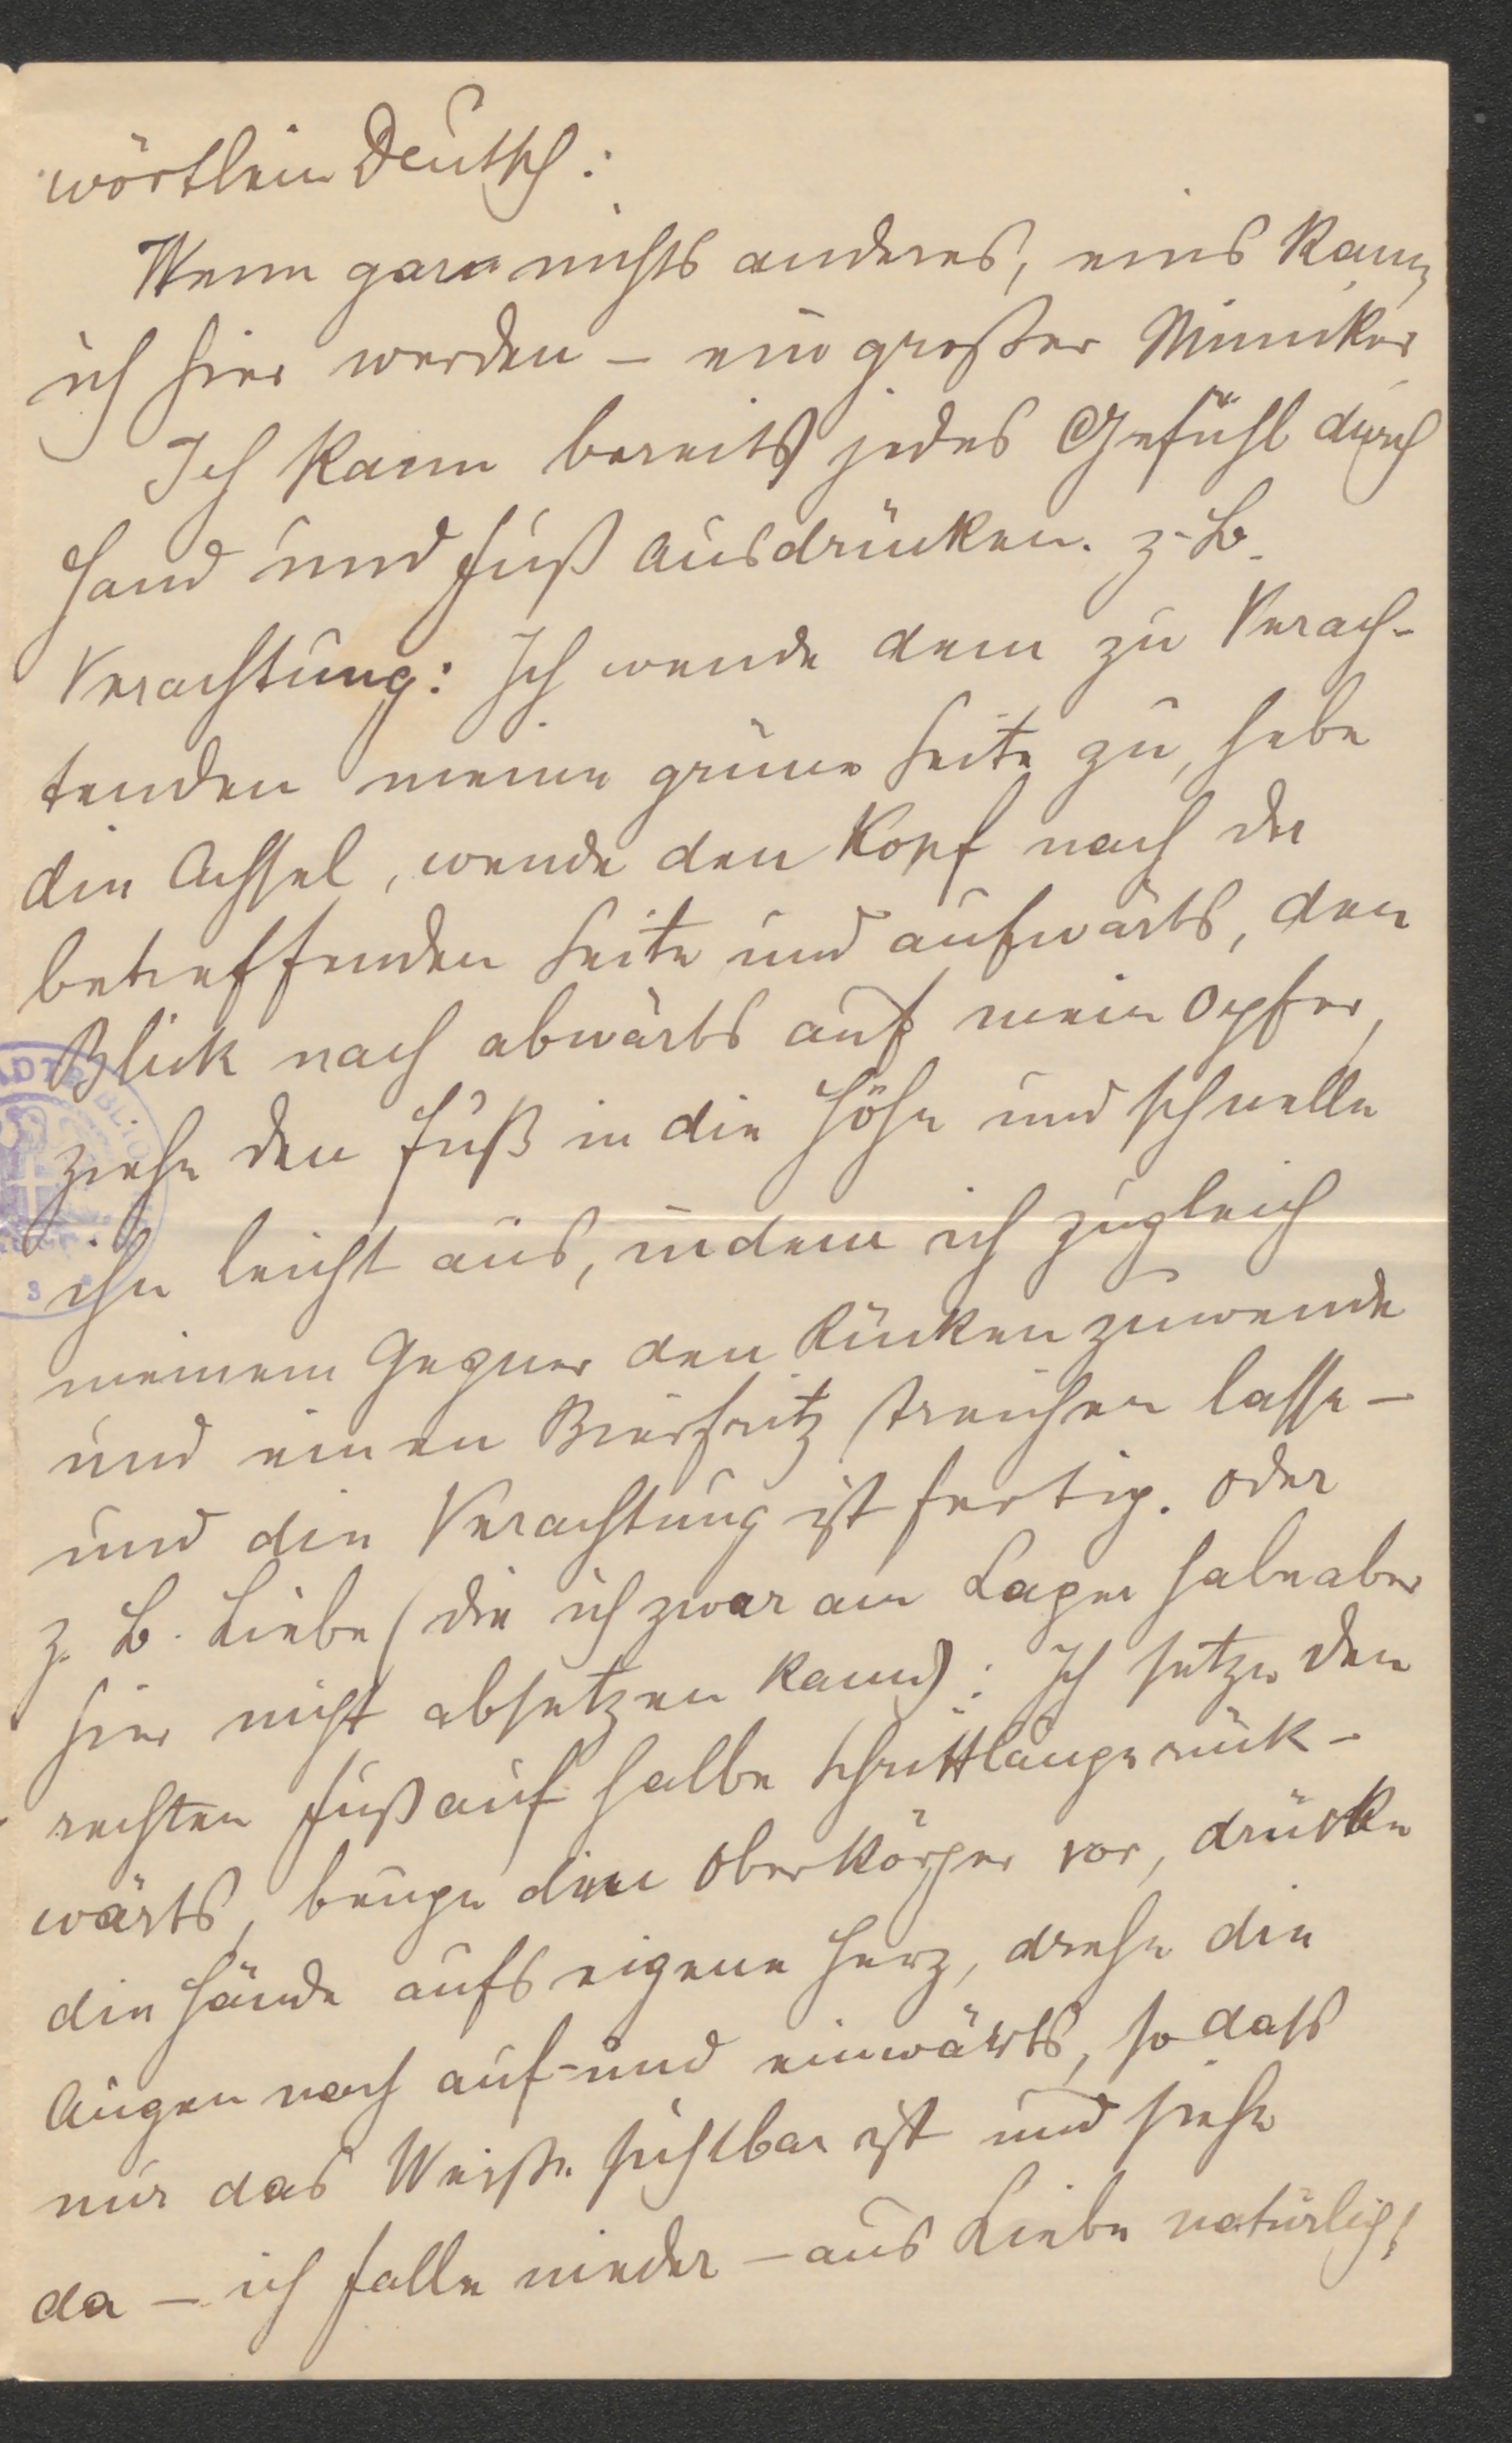 wörtlein Deutsch:
Wenn gar nichts anderes, eins kann
ich hier werden – ein großer Mimiker
Ich kann bereits jedes Gefühl durch
Hand und Fuß ausdrücken. z. B.
Verachtung: Ich wende dem zu Verach-
tenden meine grüne Seite zu, hebe
die Achsel, wende den Kopf nach der
betreffenden Seite und aufwärts, den
Blick nach abwärts auf mein Opfer,
ziehe den Fuß in die Höhe und schnelle
ihn leicht aus, indem ich zugleich
meinem Gegner den Rücken zuwende
und einen streichen lasse –
und die Verachtung ist fertig. Oder
z. B. Liebe (die ich zwar am Lager habe aber
hier nicht absetzen kann): Ich setze den
rechten Fuß auf halbe Schrittlänge rück-
wärts, beuge den Oberkörper vor, drücke
die Hände aufs eigene Herz, drehe die
Augen nach auf- und einwärts, so dass
nur das Weiße sichtbar ist und siehe
da – ich falle nieder – aus Liebe natürlich!